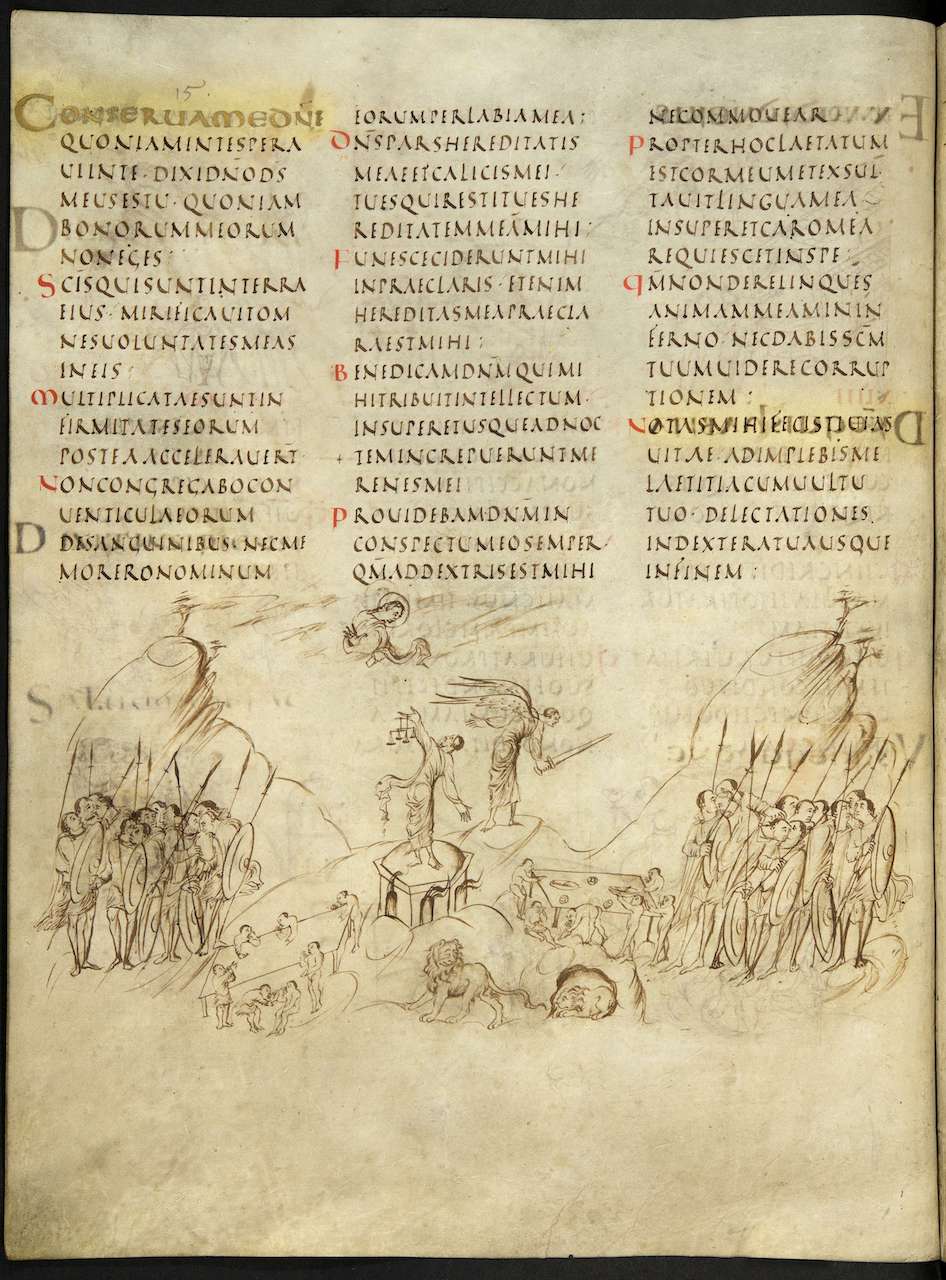 15
CONSERUAMEDN̄E
QUONIAMINTESPERA
UIINTE·DIXIDN̄OD̄S
MEUSESTU·QUONIAM
BONORUMMEORUM
NONEGES:
SC̄ISQUISUNTINTERRA
EIUS·MIRIFICAUITOM
NESUOLUNTATESMEAS
INEIS:
MULTIPLICATAESUNTIN
FIRMITATESEORUM
POSTEAACCELERAUERT̄
NONCONGREGABOCON
UENTICULAEORUM
DESANGUINIBUS·NECME
MORERONOMINUM
EORUMPERLABIAMEA:
DN̄SPARSHEREDITATIS
MEAEETCALICISMEI·
TUESQUIRESTITUESHE
REDITATEMMEAMMIHI:
FUNESCECIDERUNTMIHI
INPRAECLARIS·ETENIM
HEREDITASMEAPRAECLA
RAESTMIHI:
BENEDICAMDN̄MQUIMI
HITRIBUITINTELLECTUM·
INSUPERETUSQUEADNOC
TEMINCREPUERUNTME
RENESMEI
PROUIDEBAMDN̄MIN
CONSPECTUMEOSEMPER·
QM̄ADDEXTRISESTMIHI
NECOMMOUEAR
PROPTERHOCLAETATUM
ESTCORMEUMETEXSUL
TAUITLINGUAMEA
INSUPERETCAROMEA
REQUIESCETINSPE:
QM̄NONDERELINQUES
ANIMAMMEAMININ
FERNO·NECDABISSC̄M
TUUMUIDERECORRUP
TIONEM:
NOTASMIHIFECISTIUIAS
UITAE·ADIMPLEBISME
LAETITIACUMUULTU
TUO·DELECTATIONES
INDEXTERATUAUSQUE
INFINEM: